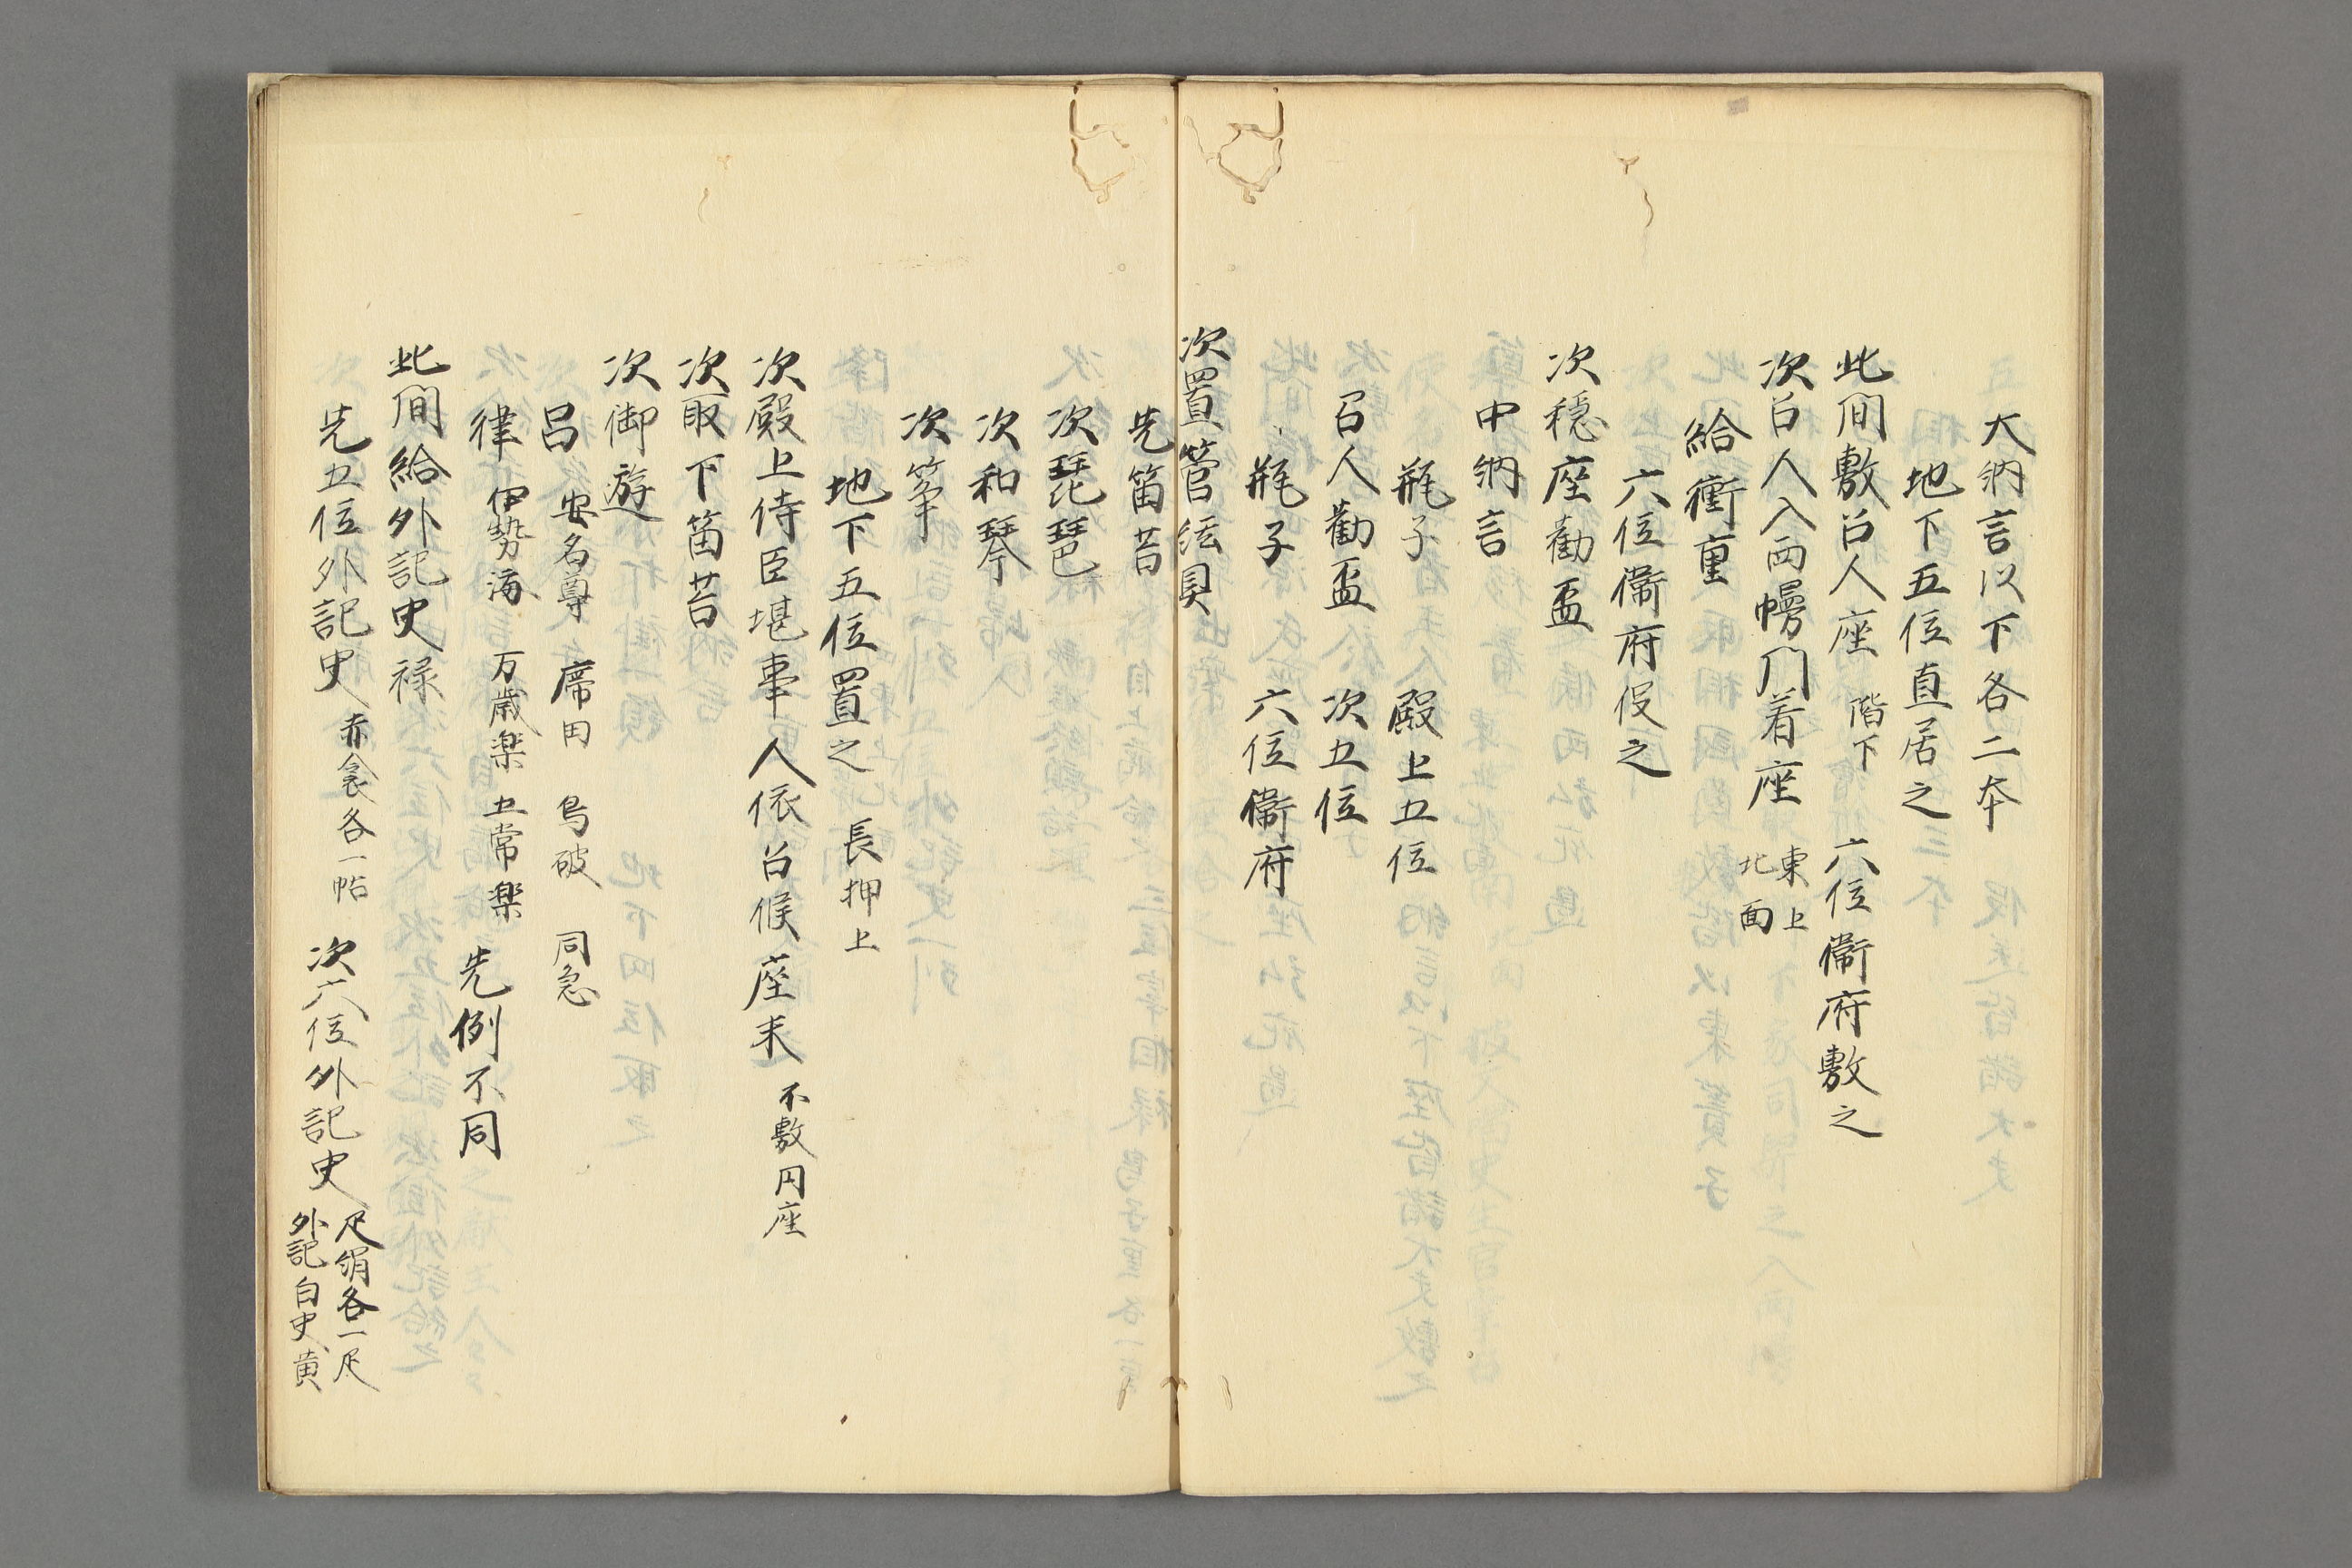 大納言以下各二本
地下五位直居之
此間敷召人座 階下 六位衛府敷之
次召人入西幔門着座 東上
北面
給衝重
六位衛府役之
次穏座勧盃
中納言
瓶子 殿上五位
召人勧盃 次五位
瓶子 六位衛府
次置管絃具
先笛筥
次琵琶
次和琴
次筝
地下五位置之 長押上
次殿上侍臣堪事人依召候座末 不敷円座
次取下笛筥
次御遊
呂 安名尊 席田 鳥破 同急
律 伊勢海 万歳楽 五常楽 先例不同
此間給外記史禄
先五位外記史 赤衾各一帖 次六位外記史 疋絹各一疋
外記白史黄